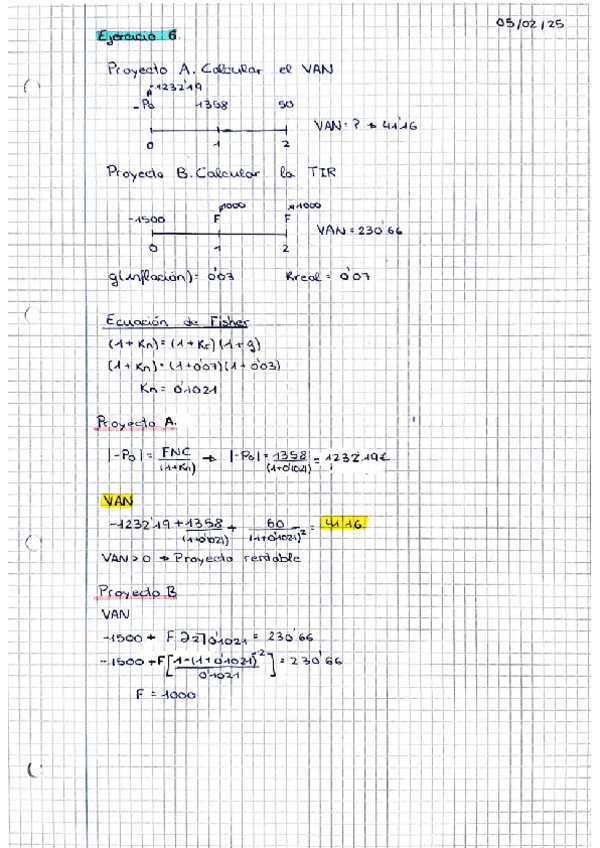 05/02/25
Ejercicio 6.
Proyecto A. Calcular el VAN
-1232'19
-Po 1358 50
VAN = ? → 41'16
0 1 2
Proyecto B. Calcular la TIR
1000 1000
-1500 F F
VAN = 230'66
0 1 2
g(inflación) = 0'03 Kreal = 0'07
Ecuación de Fisher
(1+Kn) = (1+Kr)(1+g)
(1+Kn) = (1+0'07)(1+0'03)
Kn = 0'1021
Proyecto A.
|-Po| = FNC/(1+Kn) → |-Po| = 1358/(1+0'1021) = 1232'19€
VAN
-1232'19 + 1358/(1+0'1021) + 50/(1+0'1021)² = 41'16
VAN > 0 → Proyecto rentable
Proyecto B
VAN
-1500 + F a2⅂0'1021 = 230'66
-1500 + F[1-(1+0'1021)⁻²/0'1021] = 230'66
F = 1000